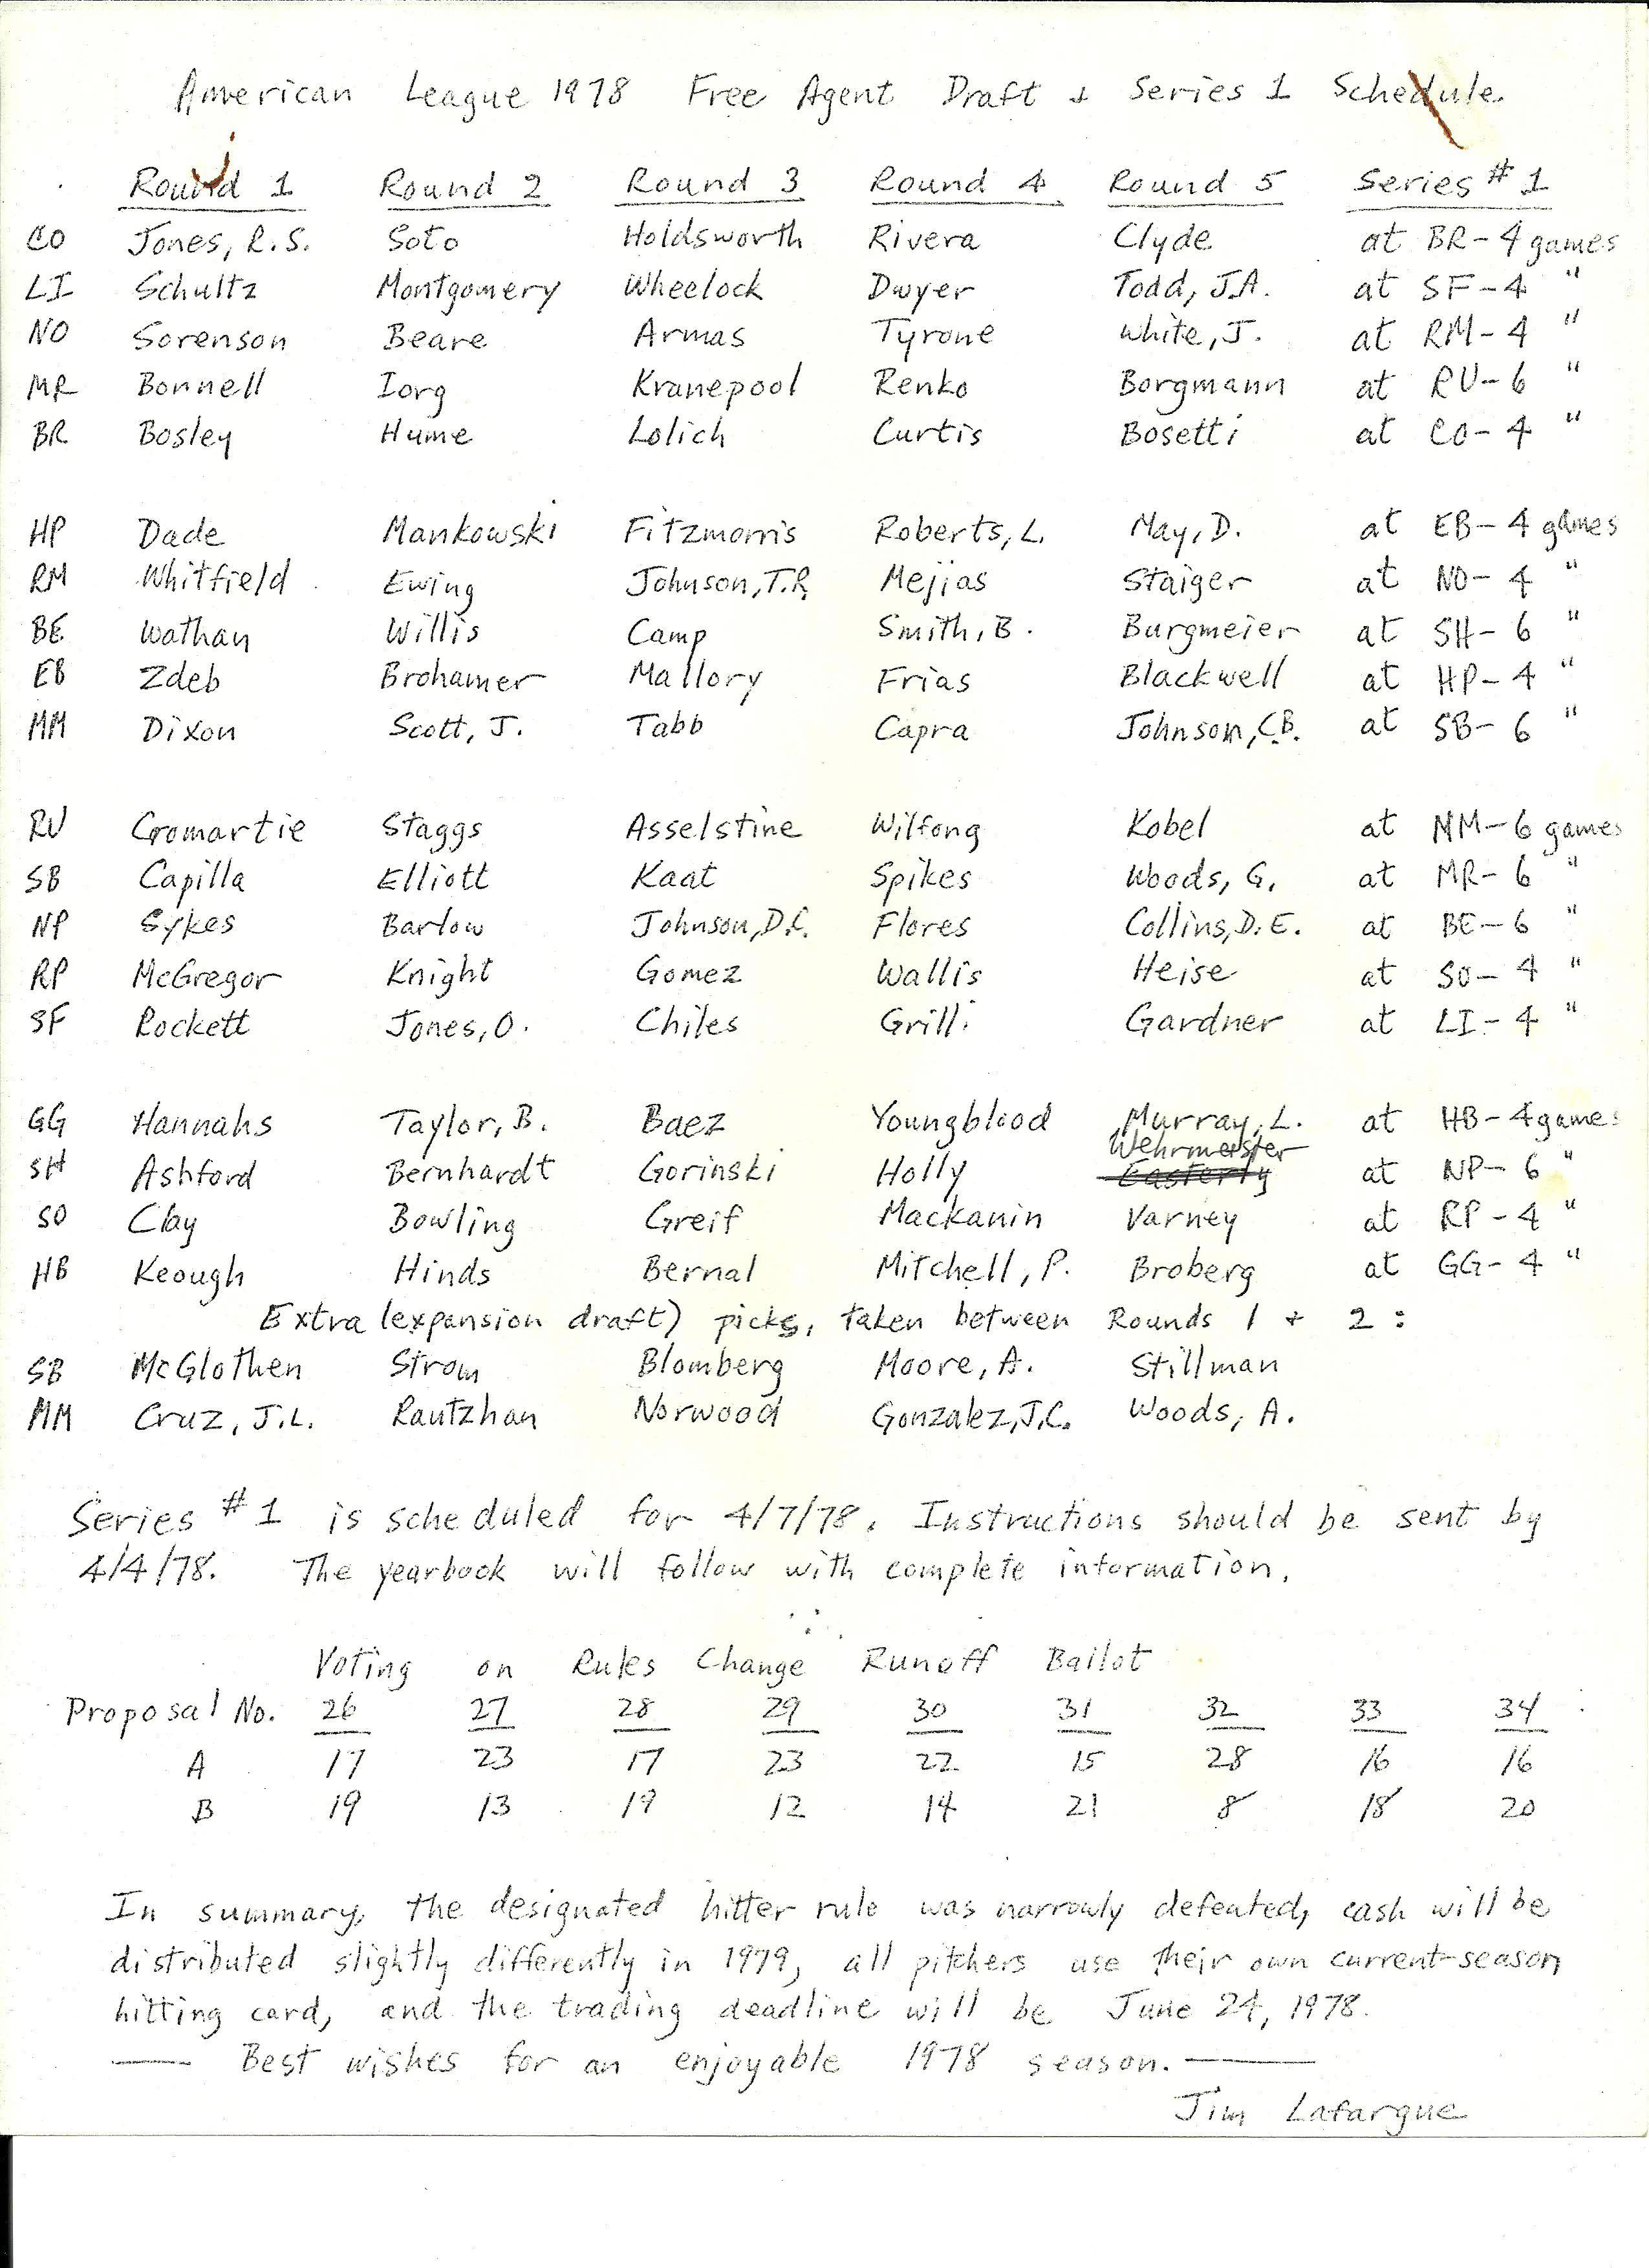 American League 1978 Free Agent Draft + Series 1 Schedule.
Round 1 Round 2 Round 3 Round 4 Round 5 Series #1
CO Jones, R.S. Soto Holdsworth Rivera Clyde at BR-4 games
LI Schultz Montgomery Wheelock Dwyer Todd, J.A. at SF-4 "
NO Sorenson Beare Armas Tyrone White, J. at RM-4 "
MR Bonnell Iorg Kranepool Renko Borgmann at RU-6 "
BR Bosley Hume Lolich Curtis Bosetti at CO-4 "
HP Dade Mankowski Fitzmorris Roberts, L. May, D. at EB-4 games
RM Whitfield Ewing Johnson, T.R. Mejias Staiger at NO-4 "
BE Wathan Willis Camp Smith, B. Burgmeier at SH-6 "
EB Zdeb Brohamer Mallory Frias Blackwell at HP-4 "
MM Dixon Scott, J. Tabb Capra Johnson, C.B. at SB-6 "
RU Cromartie Staggs Asselstine Wilfong Kobel at MM-6 games
SB Capilla Elliott Kaat Spikes Woods, G. at MR-6 "
NP Sykes Barlow Johnson, D.C. Flores Collins, D.E. at BE-6 "
RP McGregor Knight Gomez Wallis Heise at SO-4 "
SF Rockett Jones, O. Chiles Grilli Gardner at LI-4 "
GG Hannahs Taylor, B. Baez Youngblood Murray, L. at HB-4 games
Wehrmeister
SH Ashford Bernhardt Gorinski Holly Easterly at NP-6 "
SO Clay Bowling Greif Mackanin Varney at RP-4 "
HB Keough Hinds Bernal Mitchell, P. Broberg at GG-4 "
Extra (expansion draft) picks, taken between Rounds 1 + 2:
SB McGlothen Strom Blomberg Moore, A. Stillman
MM Cruz, J.L. Rautzhan Norwood Gonzalez, J.C. Woods, A.
Series #1 is scheduled for 4/7/78. Instructions should be sent by
4/4/78. The yearbook will follow with complete information.
Voting on Rules Change Runoff Ballot
Proposal No. 26 27 28 29 30 31 32 33 34
A 17 23 17 23 22 15 28 16 16
B 19 13 19 12 14 21 8 18 20
In summary, the designated hitter rule was narrowly defeated, cash will be
distributed slightly differently in 1979, all pitchers use their own current-season
hitting card, and the trading deadline will be June 24, 1978.
— Best wishes for an enjoyable 1978 season. —
Jim Lafargue